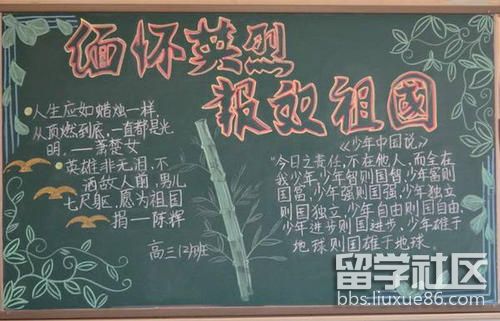 缅怀英烈
报效祖国
人生应如蜡烛一样
从顶燃到底，一直都是光
明。——萧楚女
英雄非无泪，不
洒敌人前，男儿
七尺躯，愿为祖国
捐——陈辉
高三(2)班
《少年中国说》
"今日之责任，不在他人，而全在
我少年，少年智则国智，少年富则
国富，少年强则国强，少年独立
则国独立，少年自由则国自由，
少年进步则国进步，少年雄于
地球则国雄于地球。
留学社区
bbs.liuxue86.com